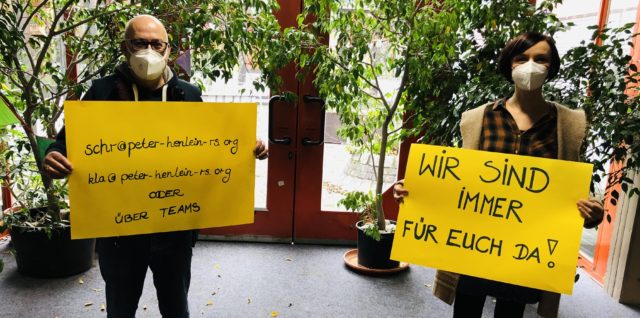 schr@peter-henlein-rs.org
kla@peter-henlein-rs.org
ODER
ÜBER TEAMS
WIR SIND
IMMER
FÜR EUCH DA!